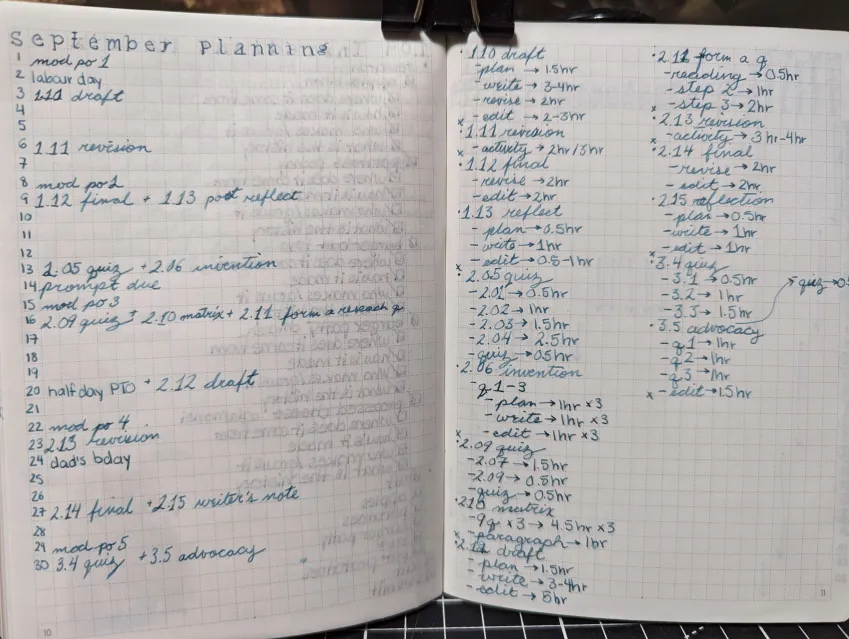 September Planning
1 mod po 1
2 labour day
3 1.10 draft
4
5
6 1.11 revision
7
8 mod po 2
9 1.12 final + 1.13 post reflect
10
11
12
13 2.05 quiz + 2.06 invention
14 prompt due
15 mod po 3
16 2.09 quiz + 2.10 matrix + 2.11 form a research q
17
18
19
20 half day PTO + 2.12 draft
21
22 mod po 4
23 2.13 revision
24 dad's bday
25
26
27 2.14 final + 2.15 writer's note
28
29 mod po 5
30 3.4 quiz + 3.5 advocacy
10
· 1.10 draft
- plan → 1.5hr
- write → 3-4hr
- revise → 2hr
x - edit → 2-3hr
· 1.11 revision
x - activity → 2hr/3hr
· 1.12 final
- revise → 2hr
- edit → 2hr
· 1.13 reflect
- plan → 0.5hr
- write → 1hr
x - edit → 0.5-1hr
· 2.05 quiz
- 2.01 → 0.5hr
- 2.02 → 1hr
- 2.03 → 1.5hr
- 2.04 → 2.5hr
- quiz → 0.5hr
· 2.06 invention
- q1-3
- plan → 1hr x3
- write → 1hr x3
x - edit → 1hr x3
· 2.09 quiz
- 2.07 → 1.5hr
- 2.09 → 0.5hr
- quiz → 0.5hr
· 2.10 matrix
- 9q x3 → 4.5hr x3
x - paragraph → 1hr
· 2.12 draft
- plan → 1.5hr
- write → 3-4hr
- edit → 5hr
· 2.11 form a q
- reading → 0.5hr
- step 2 → 1hr
x - step 3 → 2hr
· 2.13 revision
x - activity → 3hr-4hr
· 2.14 final
- revise → 2hr
- edit → 2hr
· 2.15 reflection
- plan → 0.5hr
- write → 1hr
x - edit → 1hr
· 3.4 quiz
- 3.1 → 0.5hr
- 3.2 → 1hr
- 3.3 → 1.5hr
quiz → 0.5
· 3.5 advocacy
- q1 → 1hr
- q2 → 1hr
- q3 → 1hr
x - edit → 1.5hr
11